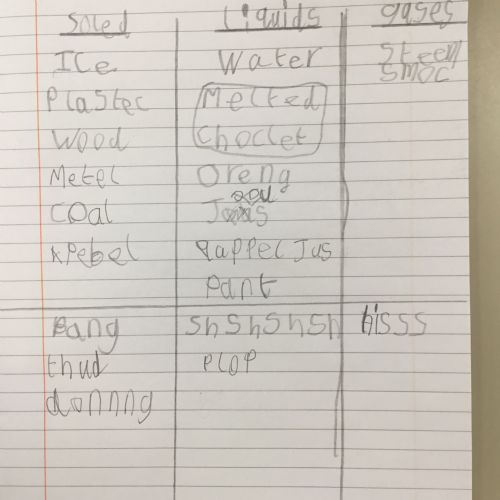 Soled Liquids gases
Ice Water Steem
Smoc
Plastec Melted
Wood Choclet
Metel Oreng
Coal
Pebel appel Jus
Pant
Bang Sh Sh Sh Sh hisss
thud Plop
donnng